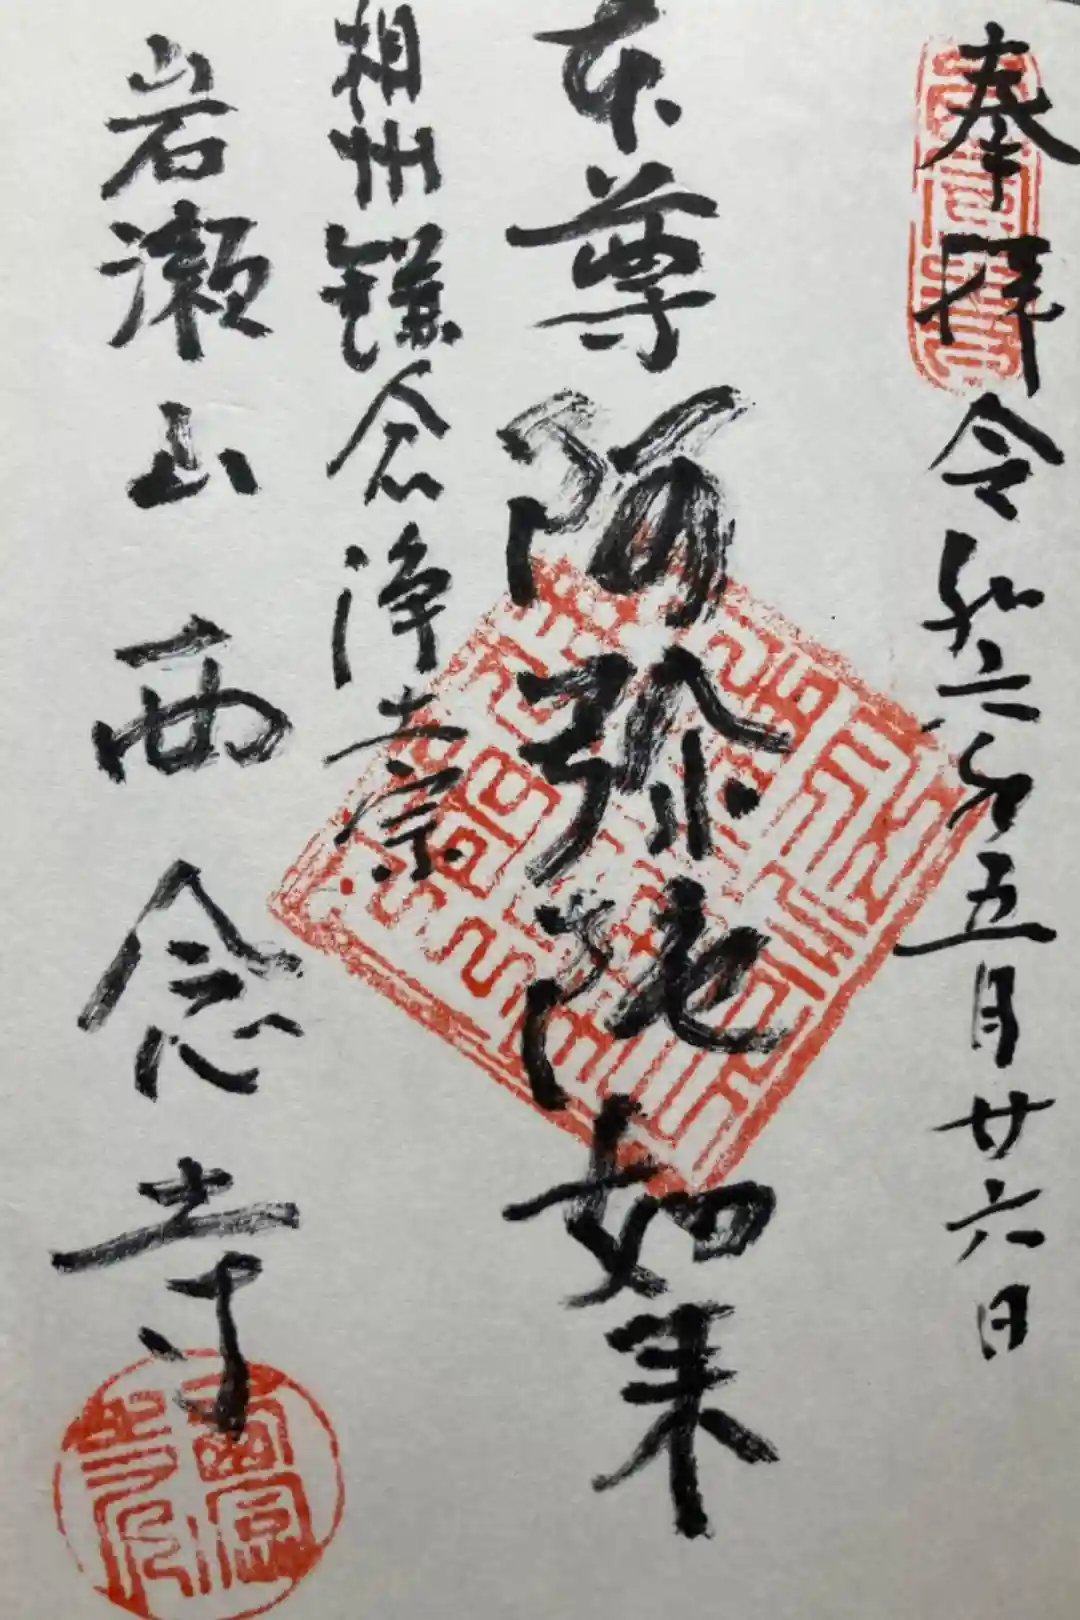 奉拝 令和六年五月廿六日
本尊 阿弥陀如来
相州鎌倉浄土宗
岩瀬山西念寺